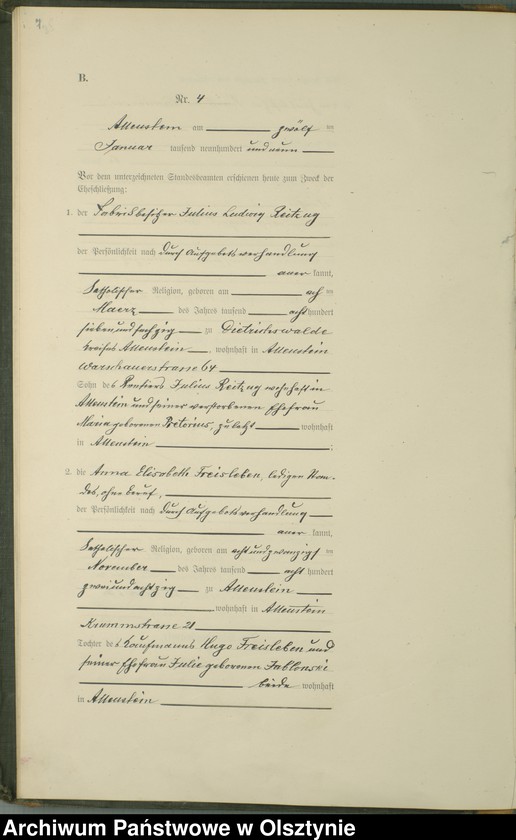 7
B.
Nr. 4
Allenstein am zwölf ten
Januar tausend neunhundert und neun
Vor dem unterzeichneten Standesbeamten erschienen heute zum Zweck der
Eheschließung:
1. der Fabrikbesitzer Julius Ludwig Reitzug
der Persönlichkeit nach durch Aufgebotsverhandlung
aner kannt,
katholischer Religion, geboren am ach ten
Maerz des Jahres tausend acht hundert
siebenundsechzig zu Dietrichswalde
Kreises Allenstein, wohnhaft in Allenstein
Warschauerstrasse 64
Sohn des Rentiers Julius Reitzug wohnhaft in
Allenstein und seiner verstorbenen Ehefrau
Maria geborenen Pretorius, zuletzt wohnhaft
in Allenstein ;
2. die Anna Elisabeth Freisleben, ledigen Stan-
des, ohne Beruf,
der Persönlichkeit nach durch Aufgebotsverhandlung
aner kannt,
katholischer Religion, geboren am achtundzwanzigs ten
November des Jahres tausend acht hundert
zweiundachtzig zu Allenstein
wohnhaft in Allenstein
Krummstrasse 21
Tochter des Kaufmanns Hugo Freisleben und
seiner Ehefrau Julie geborenen Jablonski
beide wohnhaft
in Allenstein
Archiwum Państwowe w Olsztynie